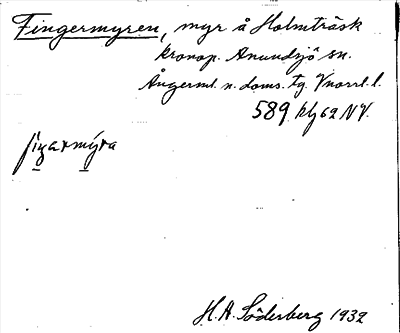 Fingermyren, myr å Holmträsk
kronop. Anundsjö sn.
Ångerml. n. doms. tg. Vnorrl. l.
589 blz 62 NV.
fiŋarmýra
H.A. Söderberg 1932